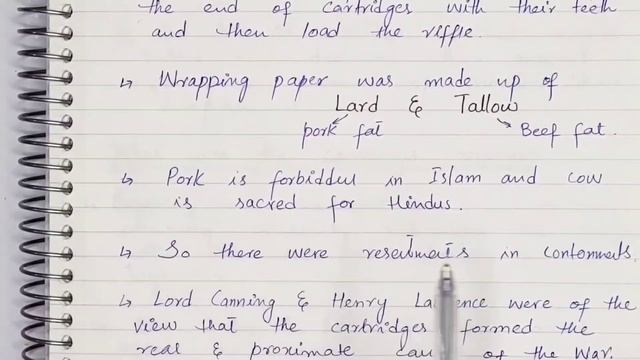 the end of cartridges with their teeth
and then load the riffle.
↳ Wrapping paper was made up of
Lard & Tallow
pork fat Beef fat.
↳ Pork is forbidden in Islam and cow
is sacred for Hindus.
↳ So there were in
↳ Lord Canning & Henry were of the
view that the cartridges formed the
real & proximate of the War.